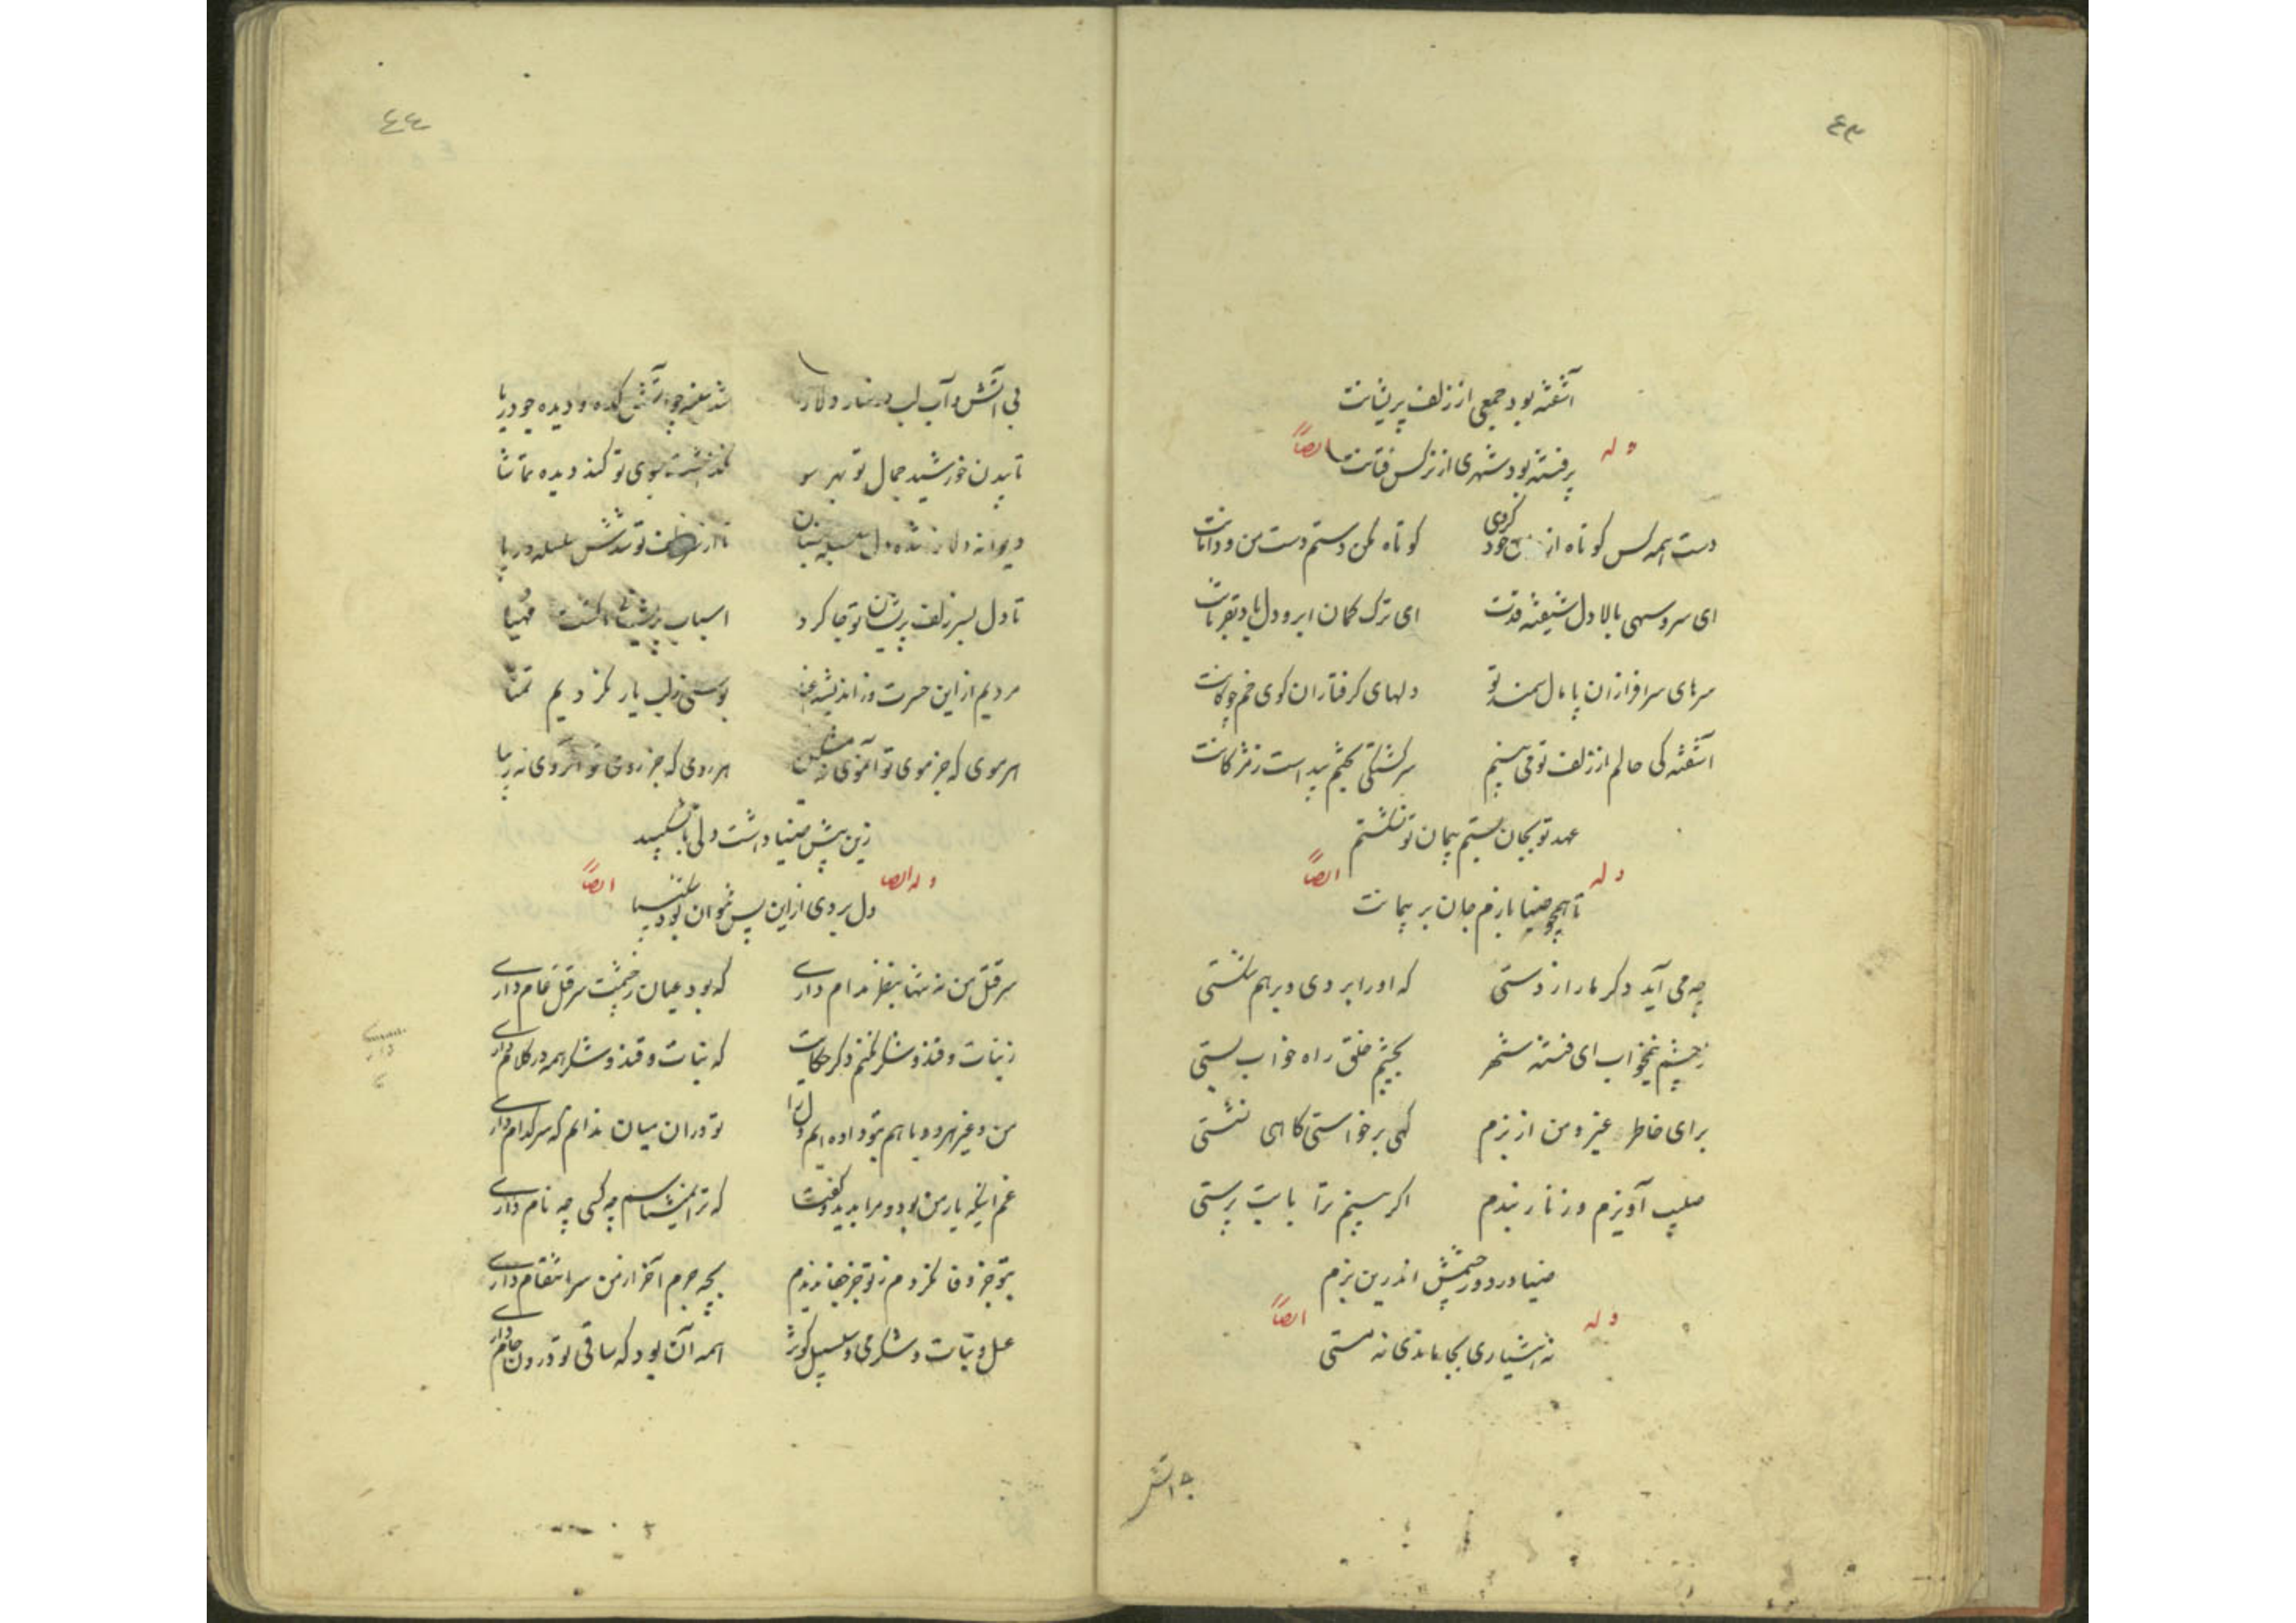 ٤٣
آشفته بود جمعی از زلف پریشانت
وله ایضاً
پرفتنه بود شهری از نرکس فتانت
دست همه کس کوتاه از خود کردی کوتاه مکن دستم دست من و دامانت
ای سرو سهی بالا دل شیفته قدت ای ترک کمان ابرو دل باد بقربانت
سرهای سرافرازان پامال سمند تو دلهای کرفتاران کوی خم چوکانت
آشفته کی حالم از زلف تو می بینم سرکشتکی بختم پیداست ز مژکانت
عهد تو بجان بستم پیمان تو نشکستم
وله ایضاً
تا همچو ضیا بازم جان بر پیمانت
چه می آید دکر ما را ز دستی که او را بردی و برهم شکستی
ز چشم نیمخواب ای فتنه شهر بچشم خلق راه خواب بستی
برای خاطر غیر و من از بزم کهی برخواستی کاهی نشستی
صلیب آویزم و زنار بندم اکر بینم ترا با بت پرستی
ضیا در دور چشمش اندرین بزم
وله ایضاً
نه هشیاری بجا ماندی نه مستی
بی آتش
٤٤
بی آتش و آب لب و رخسار دلارا شد سینه چو آتشکده و دیده چو دریا
تابیدن خورشید جمال تو بهر سو نکذاشت بسوی تو کند دیده تماشا
دیوانه دلا شده دل تا از سر زلف تو شدش سلسله در پا
تا دل بسر زلف پریشان تو جا کرد اسباب پریشانی کشت مهیا
مردیم از این حسرت و ز اندیشه غیر بوسی ز لب یار نکردیم تمنا
هر موی که جز موی تو آموی نه مشکین هر روی که جز روی تو آنروی نه زیبا
زین پیش ضیا داشت دلی با تو شکیبد
وله ایضا ایضاً
دل بردی از این پس نتوان بود شکیبا
سر قتل من نه تنها بنظر مدام داری که بود عیان ز خشمت سر قتل عام داری
ز نبات و قند و شکر نکنم دکر حکایت که نبات و قند و شکر همه در کلام داری
من و غیر هر دو با هم بتو داده ایم دل را تو در ان میان ندانم که سر کدام داری
غم اینکه یار من بود و مرا بدید و کفت که ترا نمیشناسم چه کسی چه نام داری
بتو جز وفا نکردم ز تو جز جفا ندیدم بچه جرم آخر از من سر انتقام داری
عسل و نبات و شکر می و سلسبیل کوثر همه آن بود که ساقی تو درون جام داری